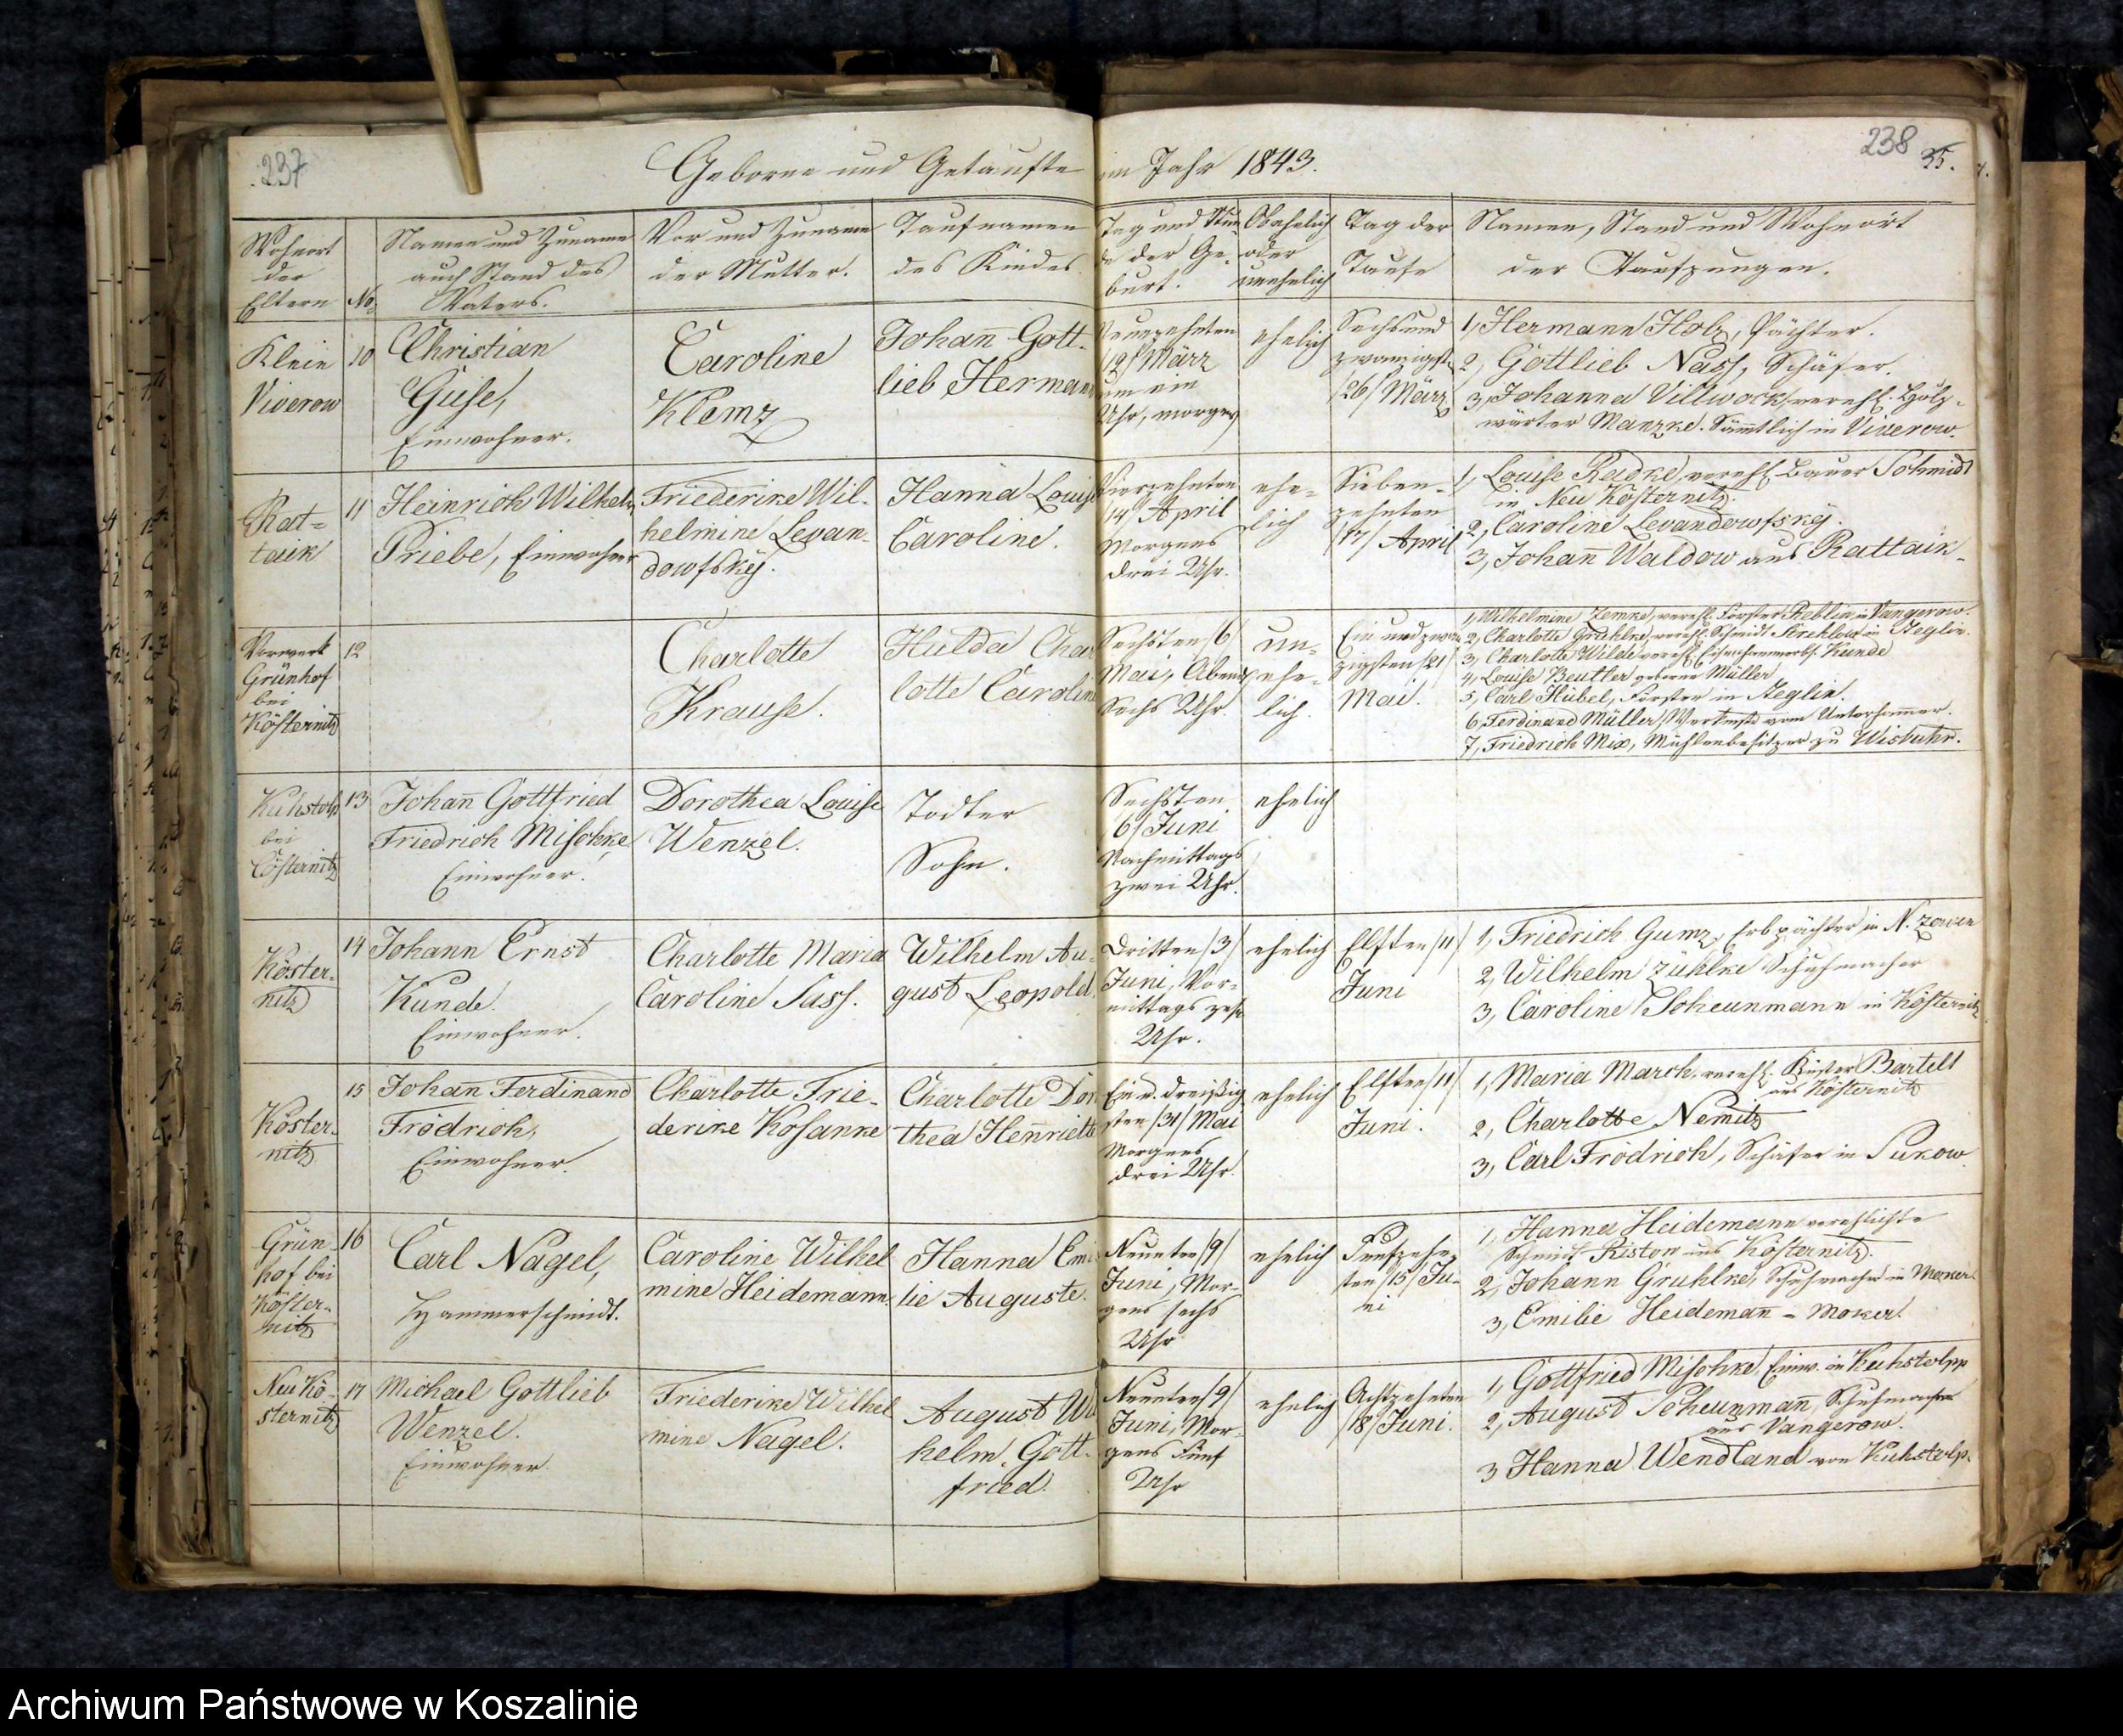 237
238
35.
Geborne und Getaufte im Jahr 1843.
Wohnort
der
Eltern
No
Namen und Zuname
auch Stand des
Vaters.
Vor und Zuname
der Mutter.
Taufnamen
des Kindes.
Tag und Stun-
de der Ge-
burt.
Obehelich
oder
unehelich
Tag der
Taufe
Namen, Stand und Wohnort
der Taufzeugen.
Klein
Viverow
10
Christian
Guse,
Einwohner.
Caroline
Klemz
Johan̄ Gott-
lieb Herman̄
Neunzehnten
/19/ März
um ein
Uhr, morgens
ehelich
Sechsund
zwanzigst.
/26/ März
1, Hermann Holz, Pächter.
2, Gottlieb Nass, Schäfer.
3, Johanna Villwock, verehl. Holz-
wärter Manzke. Sämmtlich in Viverow.
Rat-
taik
11
Heinrich Wilhelm
Priebe, Einwohner
Friederike Wil-
helmine Levan-
dowsky.
Hanna Louise
Caroline.
Vierzehnten
/14/ April
Morgens
drei Uhr.
ehe-
lich
Sieben-
zehnten
/17/ April
1, Louise Radke, verehl. Bauer Schmidt
in Neu Kösternitz.
2, Caroline Levandowsky.
3, Johan̄ Waldow aus Rattaik.
Vorwerk
Grünhof
bei
Kösternitz
12
Charlotte
Krause.
Hulda Char
lotte Caroline
Sechsten /6/
Mai, Abends
Sechs Uhr.
un-
ehe-
lich.
Ein und zwan
zigsten /21/
Mai.
1, Wilhelmine Zemke, verehl. Förster Reblin in Vangerow.
2, Charlotte Gruhlke, verehl. Schmidt Streblow in Steglin.
3, Charlotte Wilde verehl. Kunde
4, Louise Beutler geborne Müller
5, Carl Hübel, Förster in Steglin.
6, Ferdinand Müller, vom Unterhammer.
7, Friedrich Mix, Mühlenbesitzer zu Wisbuhr.
Kuhstolp
bei
Cösternitz
13
Johan̄ Gottfried
Friedrich Mischke,
Einwohner.
Dorothea Louise
Wenzel.
Todter
Sohn.
Sechsten
/6/ Juni
Nachmittags
zwei Uhr.
ehelich
Köster-
nitz
14
Johann Ernst
Kunde.
Einwohner.
Charlotte Maria
Caroline Sass.
Wilhelm Au-
gust Leopold.
Dritten /3/
Juni, Vor-
mittags zehn
Uhr.
ehelich
Elften /11/
Juni
1, Friedrich Gumz, Erbpächter in N. Zowen
2, Wilhelm Zühlke Schuhmacher
3, Caroline Scheunmann in Kösternitz
Köster-
nitz
15
Johan̄ Ferdinand
Frödrich,
Einwohner.
Charlotte Frie-
derike Kosanke
Charlotte Doro
thea Henriette
Ein u. dreißig
sten /31/ Mai
Morgens
drei Uhr.
ehelich
Elften /11/
Juni.
1, Maria March, verehl. Küster Bartelt
aus Kösternitz
2, Charlotte Nemitz
3, Carl Frödrich, Schäfer in Sukow.
Grün
hof bei
Köster-
nitz
16
Carl Nagel,
Hammerschmidt.
Caroline Wilhel
mine Heidemann.
Hanna Emi
lie Auguste.
Neunten /9/
Juni, Mor-
gens sechs
Uhr
ehelich
Funfzehn-
ten /15/ Ju-
ni
1, Hanna Heidemann verehlichte
Schmidt Ristow aus Kösternitz.
2, Johann Gruhlke, Schuhmacher in Mocker.
3, Emilie Heideman̄ - Mocker.
Neu Kö-
sternitz
17
Michael Gottlieb
Wenzel.
Einwohner
Friederike Wilhel
mine Nagel.
August Wil
helm Gott-
fried.
Neunten /9/
Juni, Mor-
gens Fünf
Uhr
ehelich
Achtzehnten
/18/ Juni.
1, Gottfried Mischke, Einw. in Kuhstolpp
2, August Scheunman̄, Schuhmacher
aus Vangerow.
3 Hanna Wendland von Kuhstolp.
Archiwum Państwowe w Koszalinie